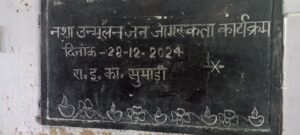 नशा उन्मूलन जन जागरूकता कार्यक्रम
दिनांक -28-12-2024
रा. इ. का. सुमाड़ी